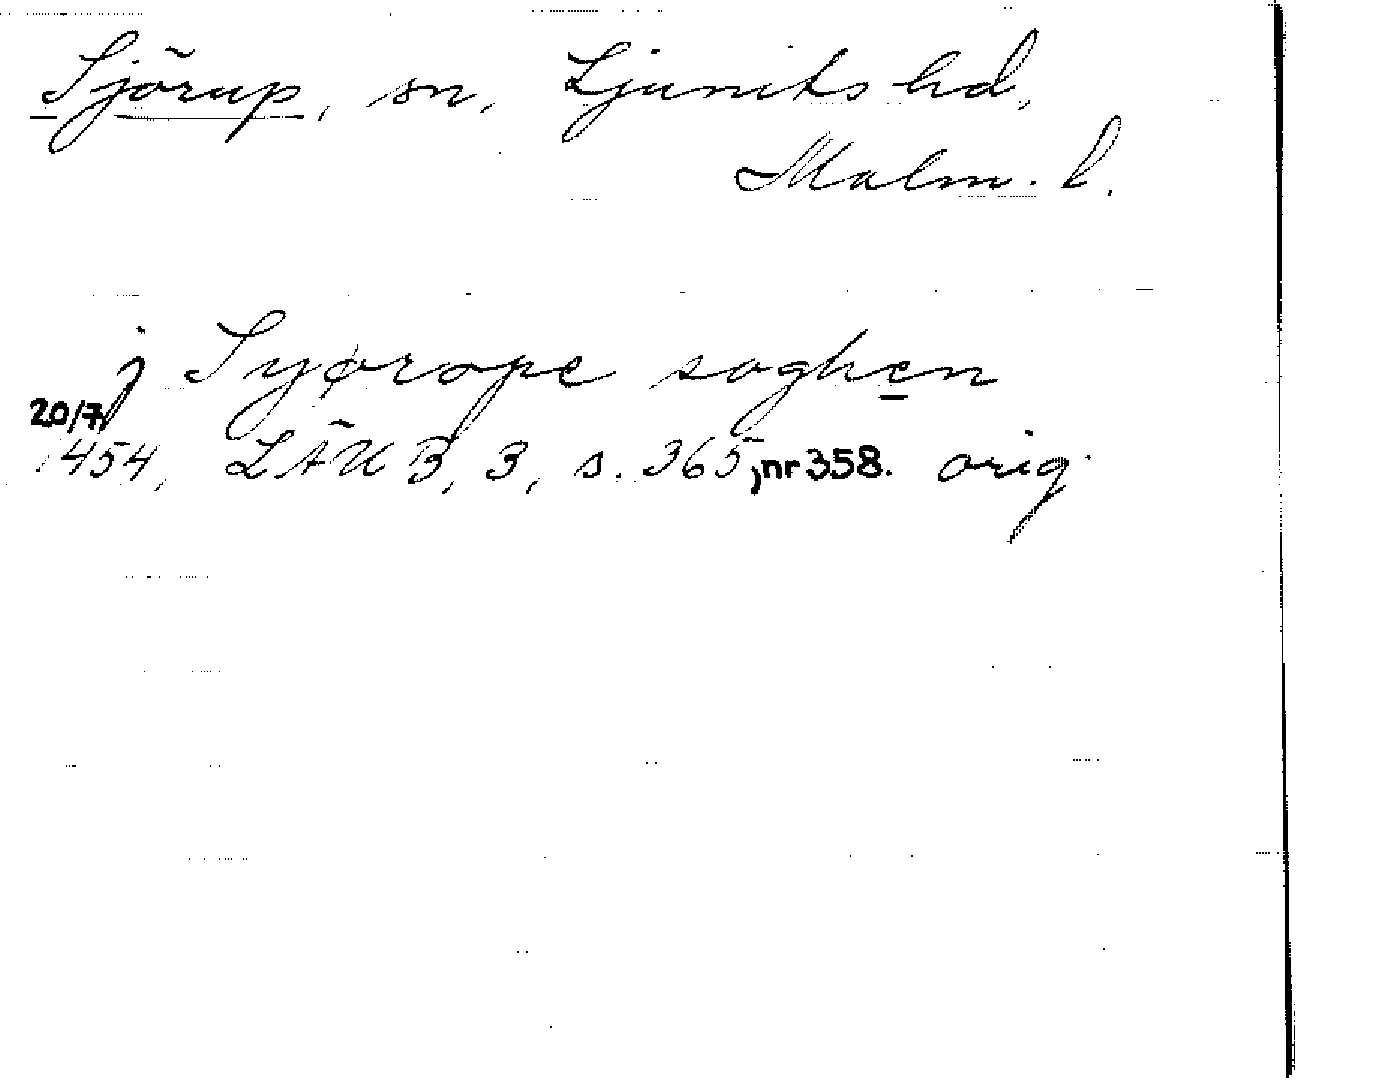 Sjörup, sn, Ljunits hd,
Malm. l.
j Syørope soghen
20/7
1454, LÄUB, 3, s. 365, nr 358. orig.